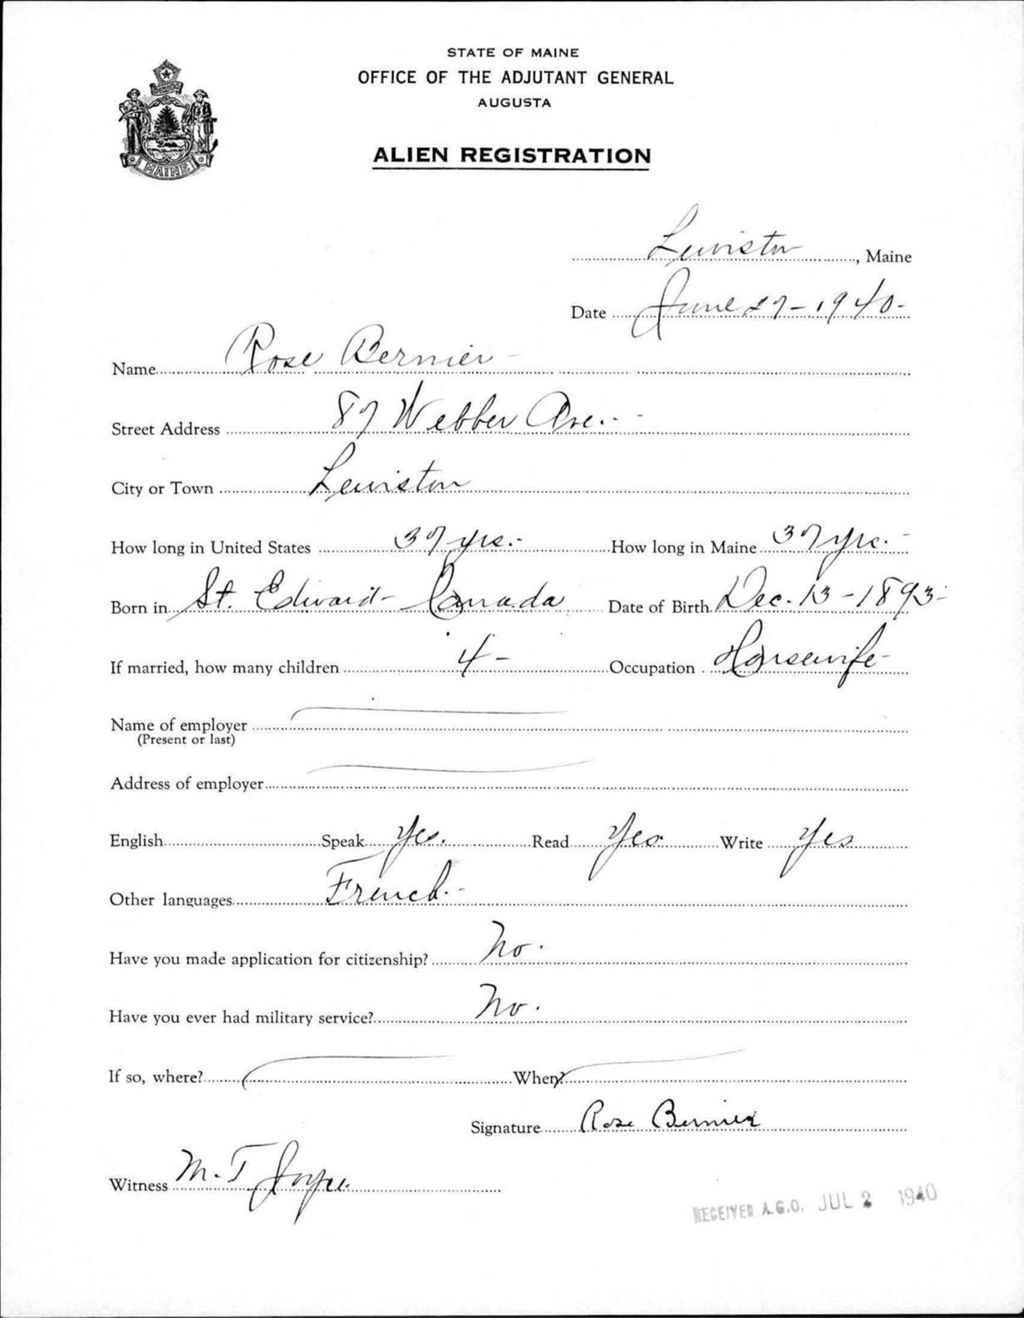 STATE OF MAINE
OFFICE OF THE ADJUTANT GENERAL
AUGUSTA
ALIEN REGISTRATION
MAINE
Lewiston, Maine
Date June 27-1940-
Name Rose Bernier-
Street Address 87 Webber Ave.-
City or Town Lewiston
How long in United States 37 yrs.- How long in Maine 37 yrs.-
Born in St. Edward- Canada Date of Birth Dec. 13-1893-
If married, how many children 4- Occupation Housewife-
Name of employer
(Present or last)
Address of employer
English Speak Yes. Read Yes Write Yes
Other languages French-
Have you made application for citizenship? No.
Have you ever had military service? No.
If so, where? When?
Signature Rose Bernier
Witness M. T Joyce
RECEIVED A.G.O. JUL 2 1940